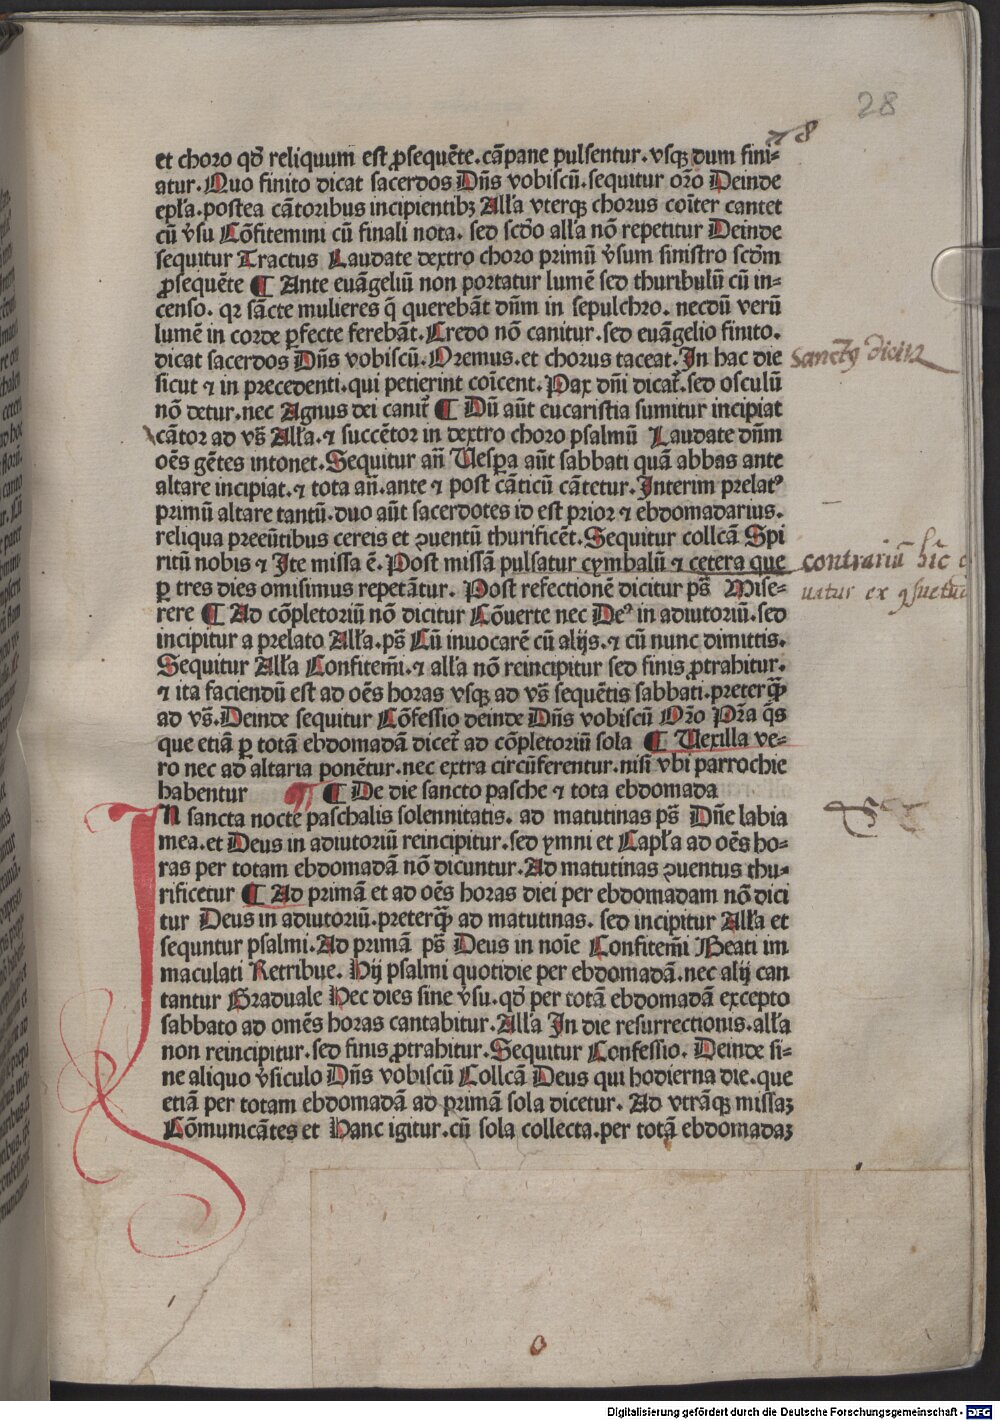 28
et choro qď reliquum est ꝓsequēte. cāpane pulsentur. vsqꝫ dum fini⸗
atur. Quo finito dicat sacerdos Dn̄s vobiscū. sequitur oro̅ Deinde
ep̄la. postea cātoribus incipientibꝫ Alla̅ vterqꝫ chorus coīter cantet
cū v̄su Cōfitemini cū finali nota. sed scd̄o alla̅ nō repetitur Deinde
sequitur Tractus Laudate dextro choro primū v̄sum sinistro scd̄m
ꝓsequēte ¶ Ante euāgeliū non portatur lumē sed thuribulū cū in⸗
censo. qꝛ sācte mulieres q̄ querebāt dn̄m in sepulchro. necdū verū
lumē in corde ꝑfecte ferebāt. Credo nō canitur. sed euāgelio finito.
dicat sacerdos Dn̄s vobiscū. Oremus. et chorus taceat. In hac die
sicut ⁊ in precedenti. qui petierint coīcent. Pax dn̄i dicat̄. sed osculū
nō detur. nec Agnus dei canit̄ ¶ Dū aūt eucaristia sumitur incipiat
cātor ad vs̄ Alla̅. ⁊ succētor in dextro choro psalmū Laudate dn̄m
oēs gētes intonet. Sequitur an̄ Vesꝑa aūt sabbati quā abbas ante
altare incipiat. ⁊ tota an̄. ante ⁊ post cāticū cātetur. Interim prelatꝰ
primū altare tantū. duo aūt sacerdotes id est prior ⁊ ebdomadarius.
reliqua preeūtibus cereis et ꝯuentū thurificēt. Sequitur collcā Spi
ritū nobis ⁊ Ite missa ē. Post missā pulsatur cymbalū ⁊ cetera que
ꝑ tres dies omisimus repetātur. Post refectionē dicitur ps̄ Mise⸗
rere ¶ Ad cōpletoriū nō dicitur Cōuerte nec Deꝰ in adiutoriū. sed
incipitur a prelato Alla̅. ps̄ Cū inuocarē cū alijs. ⁊ cū nunc dimittis.
Sequitur Alla̅ Confitem̄i. ⁊ alla̅ nō reincipitur sed finis ꝓtrahitur.
⁊ ita faciendū est ad oēs horas vsqꝫ ad vs̄ sequētis sabbati. preterꝙ̄
ad vs̄. Deinde sequitur Cōfessio deinde Dn̄s vobiscū Oro̅ Pra̅ q̄s
que etiā ꝑ totā ebdomadā dicet̄ ad cōpletoriū sola ¶ Vexilla ve⸗
ro nec ad altaria ponētur. nec extra circūferentur. nisi vbi parrochie
habentur ¶ De die sancto pasche ⁊ tota ebdomada
IN sancta nocte paschalis solennitatis. ad matutinas ps̄ Dn̄e labia
mea. et Deus in adiutoriū reincipitur. sed ymni et Capla̅ ad oēs ho⸗
ras per totam ebdomadā nō dicuntur. Ad matutinas ꝯuentus thu⸗
rificetur ¶ Ad primā et ad oēs horas diei per ebdomadam nō dici
tur Deus in adiutoriū. preterꝙ̄ ad matutinas. sed incipitur Alla̅ et
sequntur psalmi. Ad primā ps̄ Deus in noīe Confitem̄i Beati im
maculati Retribue. Hij psalmi quotidie per ebdomadā. nec alij can
tantur Graduale Hec dies sine v̄su. qď per totā ebdomadā excepto
sabbato ad omēs horas cantabitur. Alla̅ In die resurrectionis. alla̅
non reincipitur. sed finis ꝓtrahitur. Sequitur Confessio. Deinde si⸗
ne aliquo v̄siculo Dn̄s vobiscū Collcā Deus qui hodierna die. que
etiā per totam ebdomadā ad primā sola dicetur. Ad vtrāqꝫ missaꝫ
Cōmunicātes et Hanc igitur. cū sola collecta. per totā ebdomadaꝫ
Sanctꝰ dicit̄
contrariū hic
ex ꝯsuetud
Digitalisierung gefördert durch die Deutsche Forschungsgemeinschaft - DFG